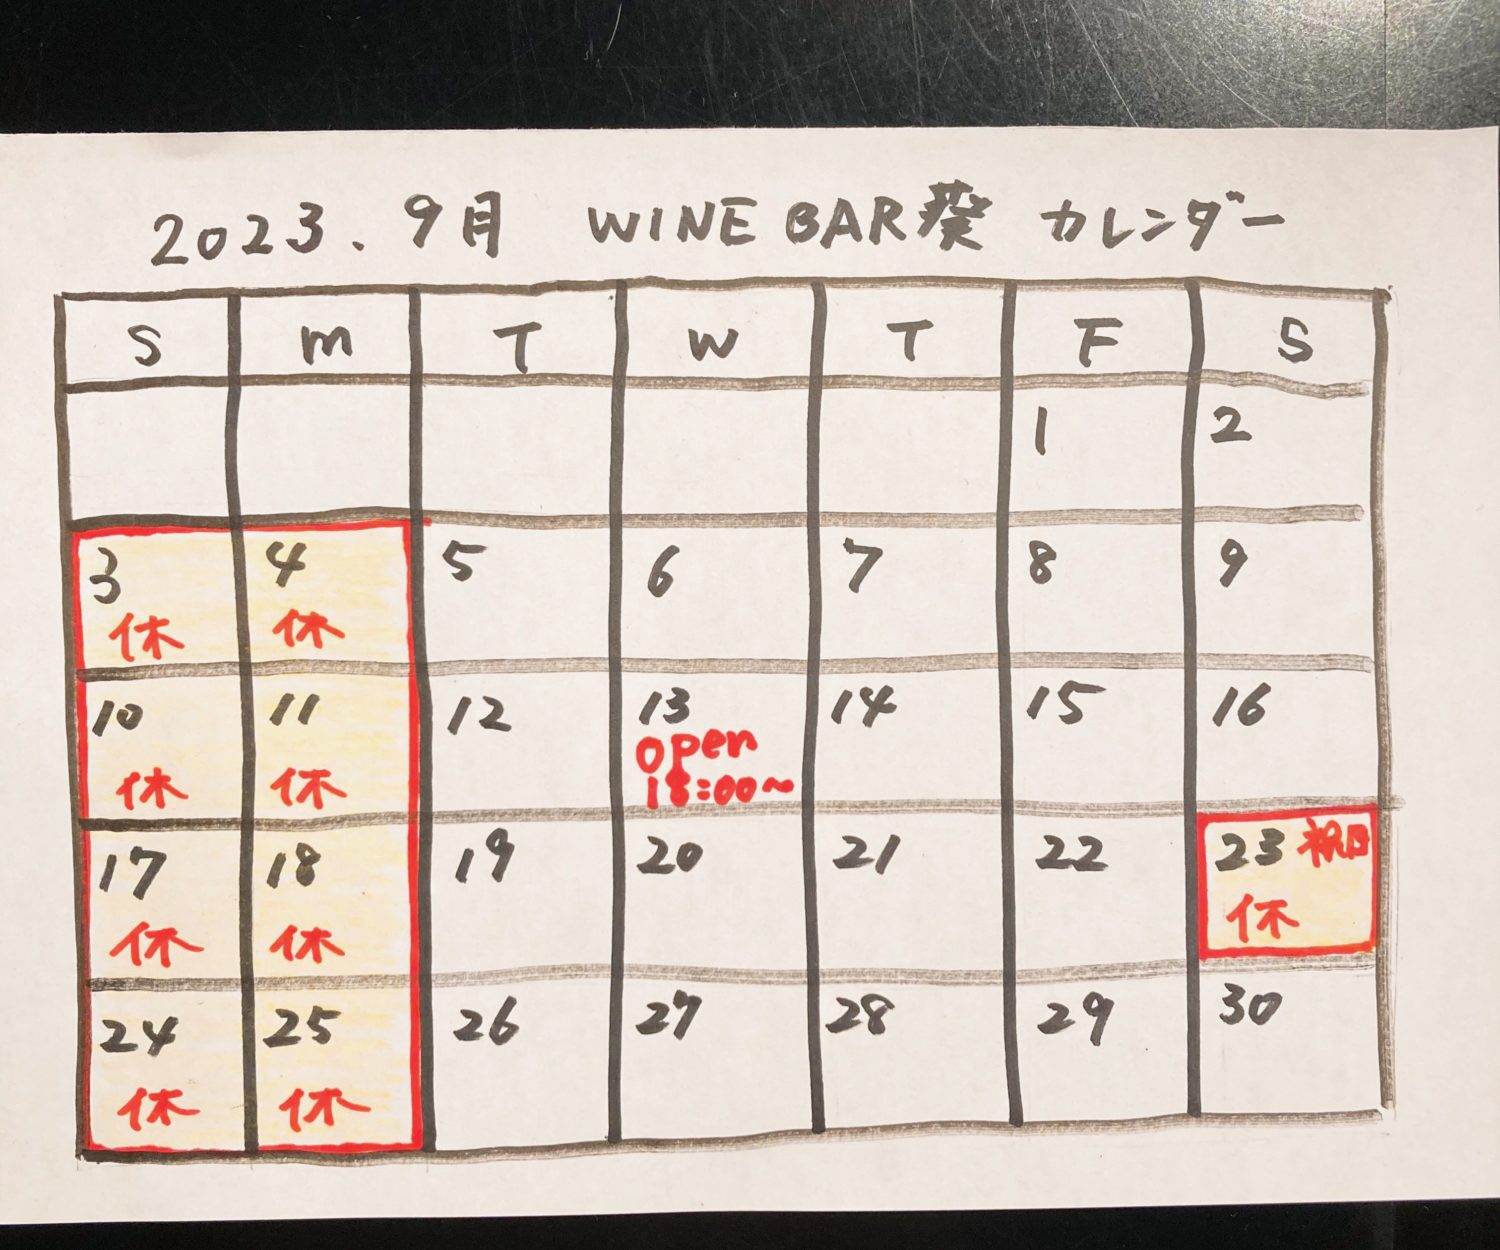 2023.9月 WINE BAR葵 カレンダー
S M T W T F S
1 2
3 4 5 6 7 8 9
休 休
10 11 12 13 14 15 16
open
休 休 18:00~
17 18 19 20 21 22 23 祝日
休 休 休
24 25 26 27 28 29 30
休 休